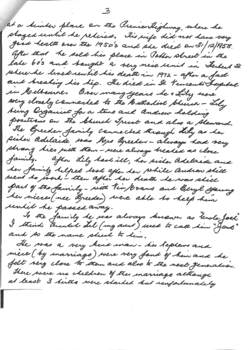 3
at a timber place on the Princes Highway, where he
stayed until he retired. His wife did not have very
good health over the 1950's and she died on
After that he sold his place in Potter Street in the
late 60's and bought a very neat unit in
where he lived until his death in 1972 - after a fall
and breaking his hip. He died in St Vincents Hospital
in Melbourne. Over many years he & Lily were
very closely connected to the Methodist Church - Lily
being Organist for a time and Andrew holding
positions on the Church and also at Howard.
The Gredden family connected through Lily as her
sister Adelaide was Mrs Gredden - always had very
strong ties with them - were always treated as close
family. After Lily took ill, her sister Adelaide and
her family helped look after her while Andrew still
went to work! then after her death he was still
part of the family - with Jim Evans and Beryl
her niece (nee Gredden) were able to help him
until he passed away.
To the family he was always known as "Uncle Jock"
I think Auntie Lil (my aunt) used to call him "Jock"
and so the name stuck to him.
He was a very kind man - his nephews and
niece (by marriage) were very fond of him and he
felt very close to them and also to the next generation.
There were no children of the marriage although
at least 3 births were started but unfortunately